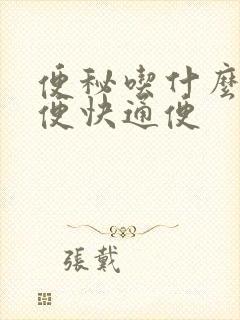 便秘喫什麼
便快通便
張戴